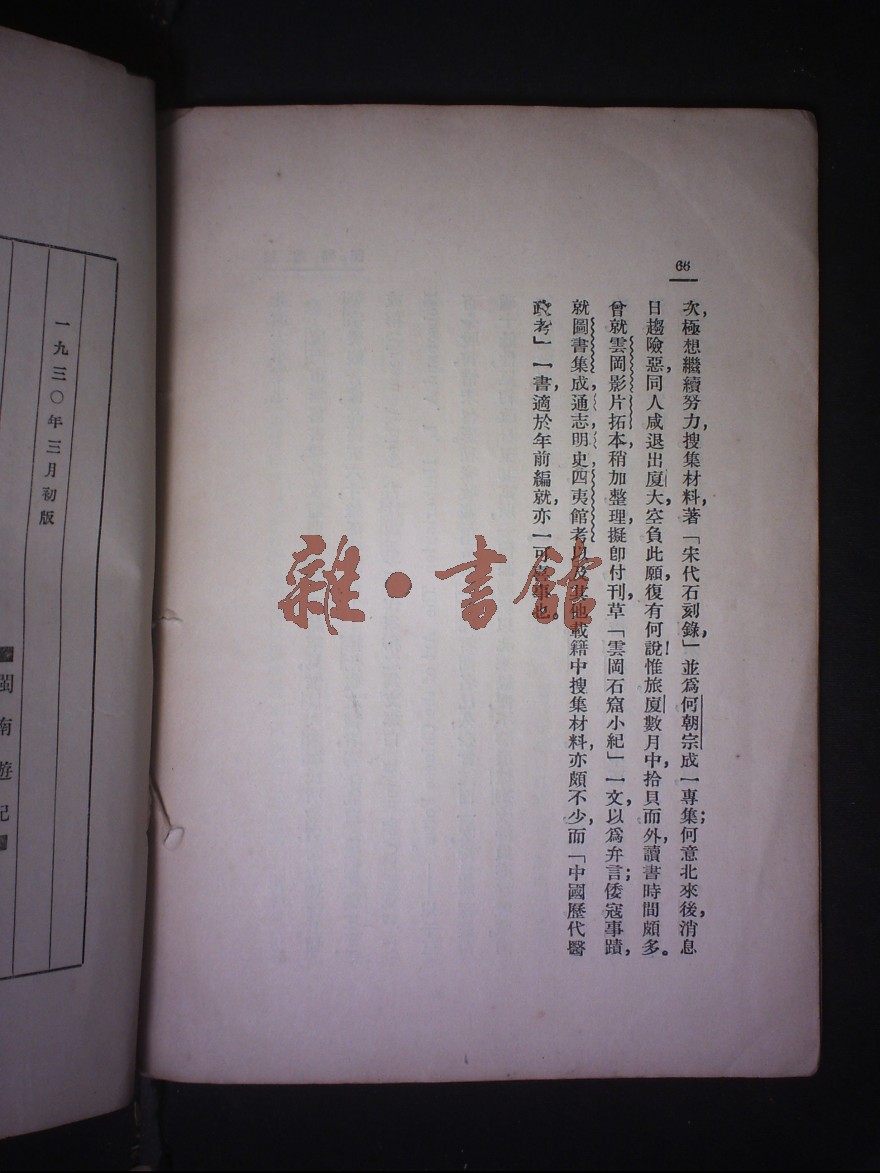 66
次,極想繼續努力,搜集材料,著「宋代石刻錄,」並爲何朝宗成一專集;何意北來後,消息
日趨險惡,同人咸退出廈大,空負此願,復有何說!惟旅廈數月中,拾貝而外,讀書時間頗多。
曾就雲岡影片拓本,稍加整理,擬卽付刊,草「雲岡石窟小紀」一文,以爲弁言;倭寇事蹟,
就圖書集成,通志,明史,四夷館考以及其他載籍中搜集材料,亦頗不少,而「中國歷代醫
政考」一書,適於年前編就,亦一可喜事也。
雜·書館
一九三〇年三月初版
閩南遊記